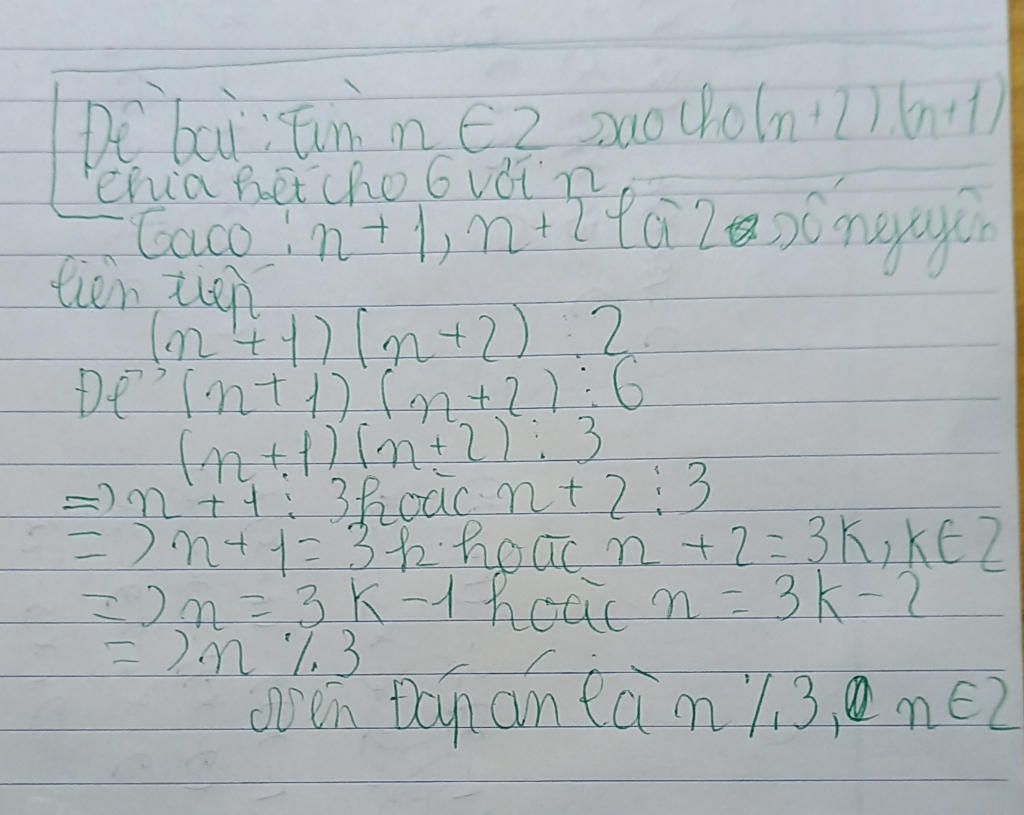 Đề bài: Tìm n ∈ Z sao cho (n+2).(n+1)
chia hết cho 6 với n
Taco: n+1, n+2 là 2 số nguyên
liên tiếp
(n+1)(n+2)⋮2
Để (n+1)(n+2)⋮6
(n+1)(n+2)⋮3
=>n+1⋮3 hoặc n+2⋮3
=>n+1=3k hoặc n+2=3k, k∈Z
=>n=3k-1 hoặc n=3k-2
=>n⋮̸3
Nên Đáp án là n⋮̸3, n∈Z